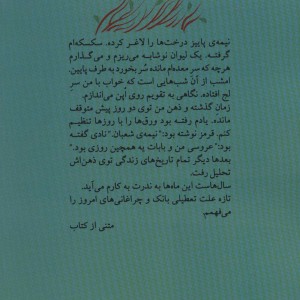 نیمه‌ی پاییز درخت‌ها را لاغر کرده. سکسکه‌ام
گرفته. یک لیوان نوشابه می‌ریزم و می‌گذارم
هرچه که سر معده‌ام مانده سُر بخورد به طرف پایین.
امشب از آن شب‌هایی است که خواب با من سرِ
لج افتاده. نگاهی به تقویم روی اُپن می‌اندازم.
زمان گذشته و ذهن من توی دو روز پیش متوقف
مانده. یادم رفته بود ورق‌ها را با روزها تنظیم
کنم. قرمز نوشته بود: "نیمه‌ی شعبان." نادی گفته
بود: "عروسی من و بابات یه همچین روزی بود."
بعدها دیگر تمام تاریخ‌های زندگی توی ذهن‌اش
تحلیل رفت.
سال‌هاست این ماه‌ها به ندرت به کارم می‌آید.
تازه علت تعطیلی بانک و چراغانی‌های امروز را
می‌فهمم
متنی از کتاب